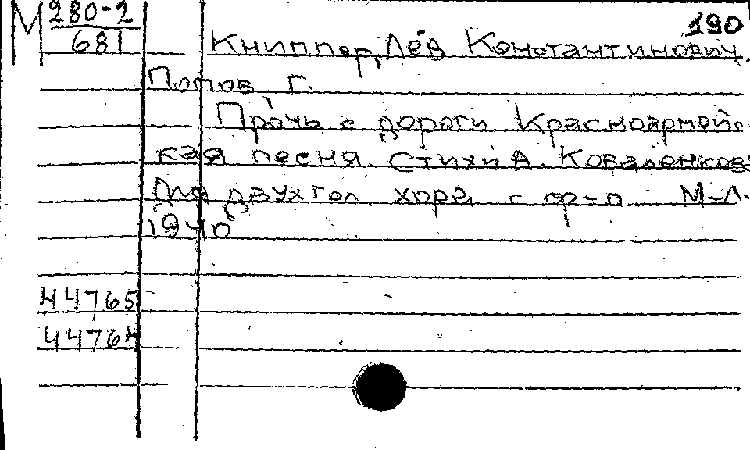 М 280-2 190
681 Книппер, Лев Константинович.
Попов Г.
Прочь с дороги Красноармейс
кая песня. Стихи А. Коваленков
Для двухгол. хора с ф-п М-Л.
1940
44765
44764